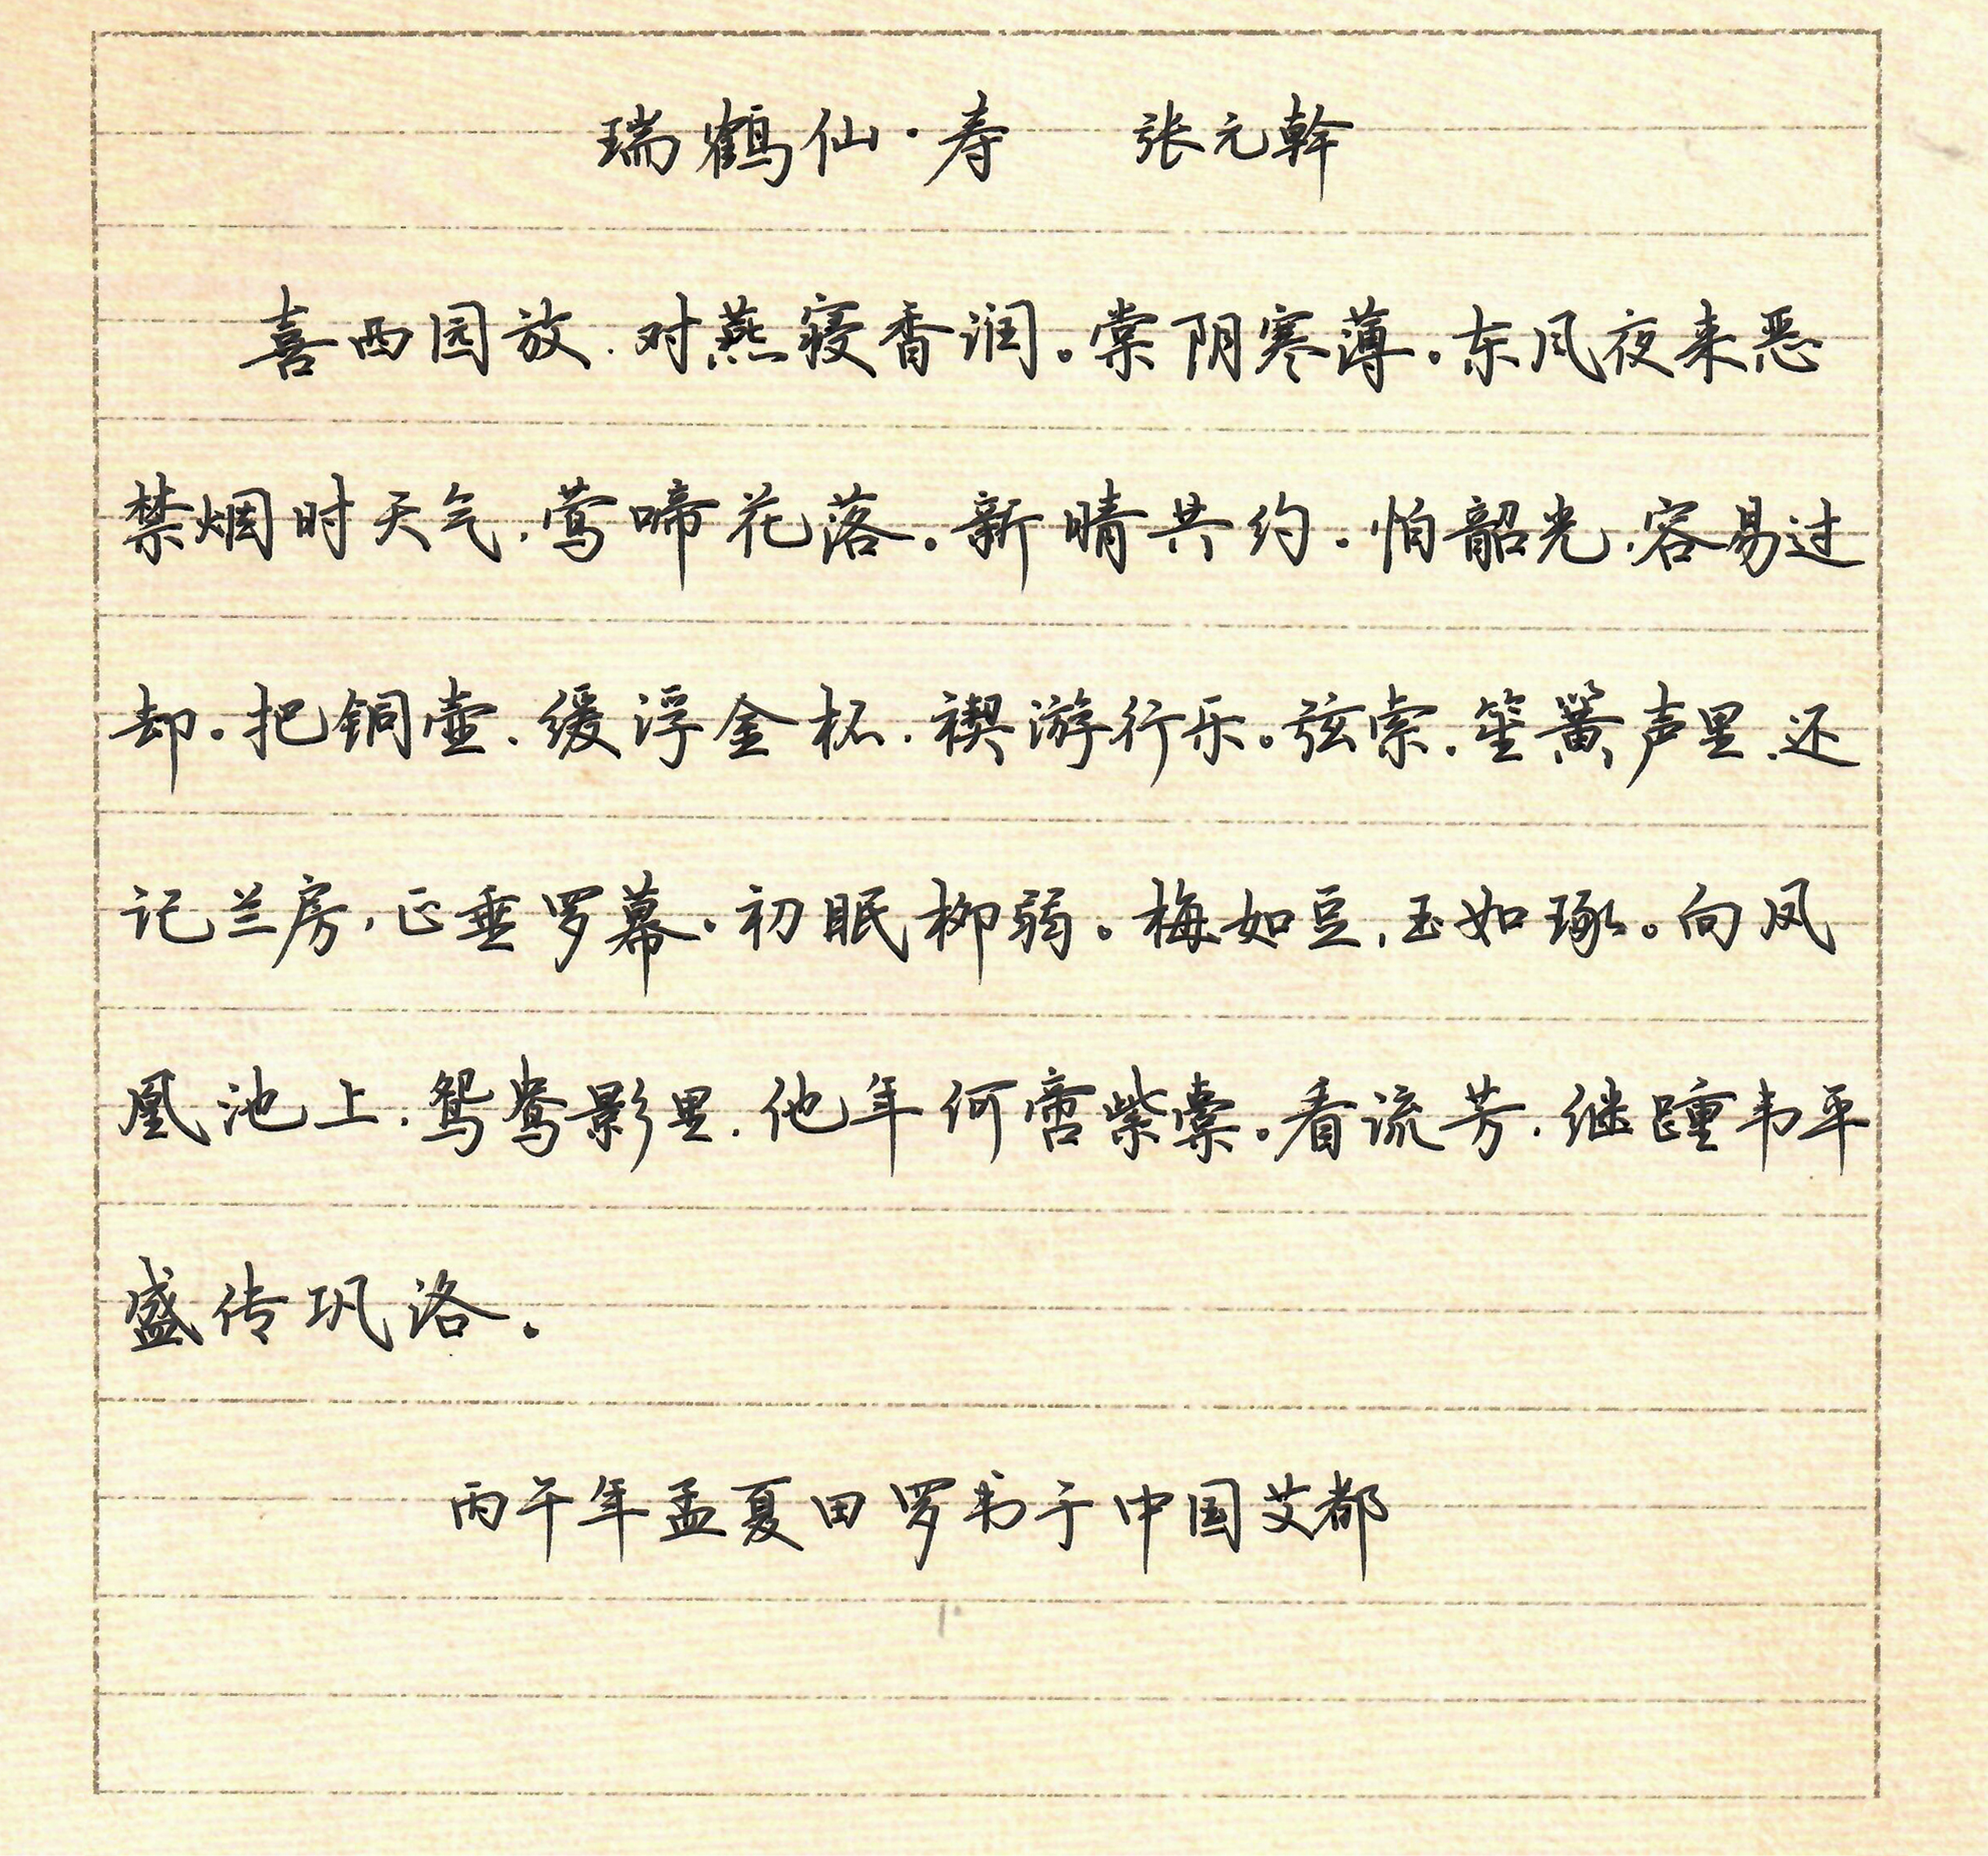 瑞鹤仙·寿 张元幹
喜西园放，对燕寝香润。棠阴寒薄。东风夜来恶
禁烟时天气，莺啼花落。新晴共约。怕韶光，容易过
却。把铜壶，缓浮金杯，禊游行乐。弦索，笙簧声里，还
记兰房，正垂罗幕。初眠柳弱。梅如豆，玉如琢。向凤
凰池上，鸳鸯影里，他年何啻紫橐。看流芳，继踵韦平
盛传巩洛。
丙午年孟夏田罗书于中国艾都